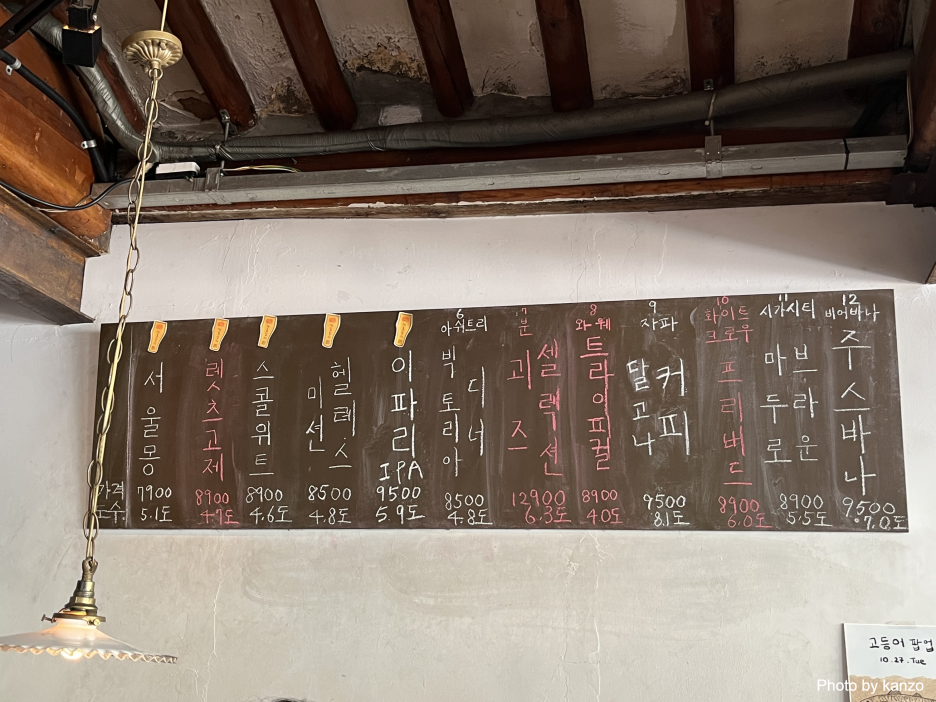 가격
도수
서울몽
7900
5.1도
렛츠고제
8900
4.7도
스콜위트
8900
4.6도
헬레스
미션
8500
4.8도
이파리
IPA
9500
5.9도
6
아쉬트리
빅토리아
디너
8500
4.8도
분
괴즈
셀렉션
12900
6.3도
8
와웨
트라이피컬
8900
4.0도
9
자파
달고나
커피
9500
8.1도
10
화이트
크로우
프리버드
8900
6.0도
11
시가시티
마두로
브라운
8900
5.5도
12
비어바나
주스바나
9500
7.0도
고등어 팝업
10.27.Tue
Photo by kanzo